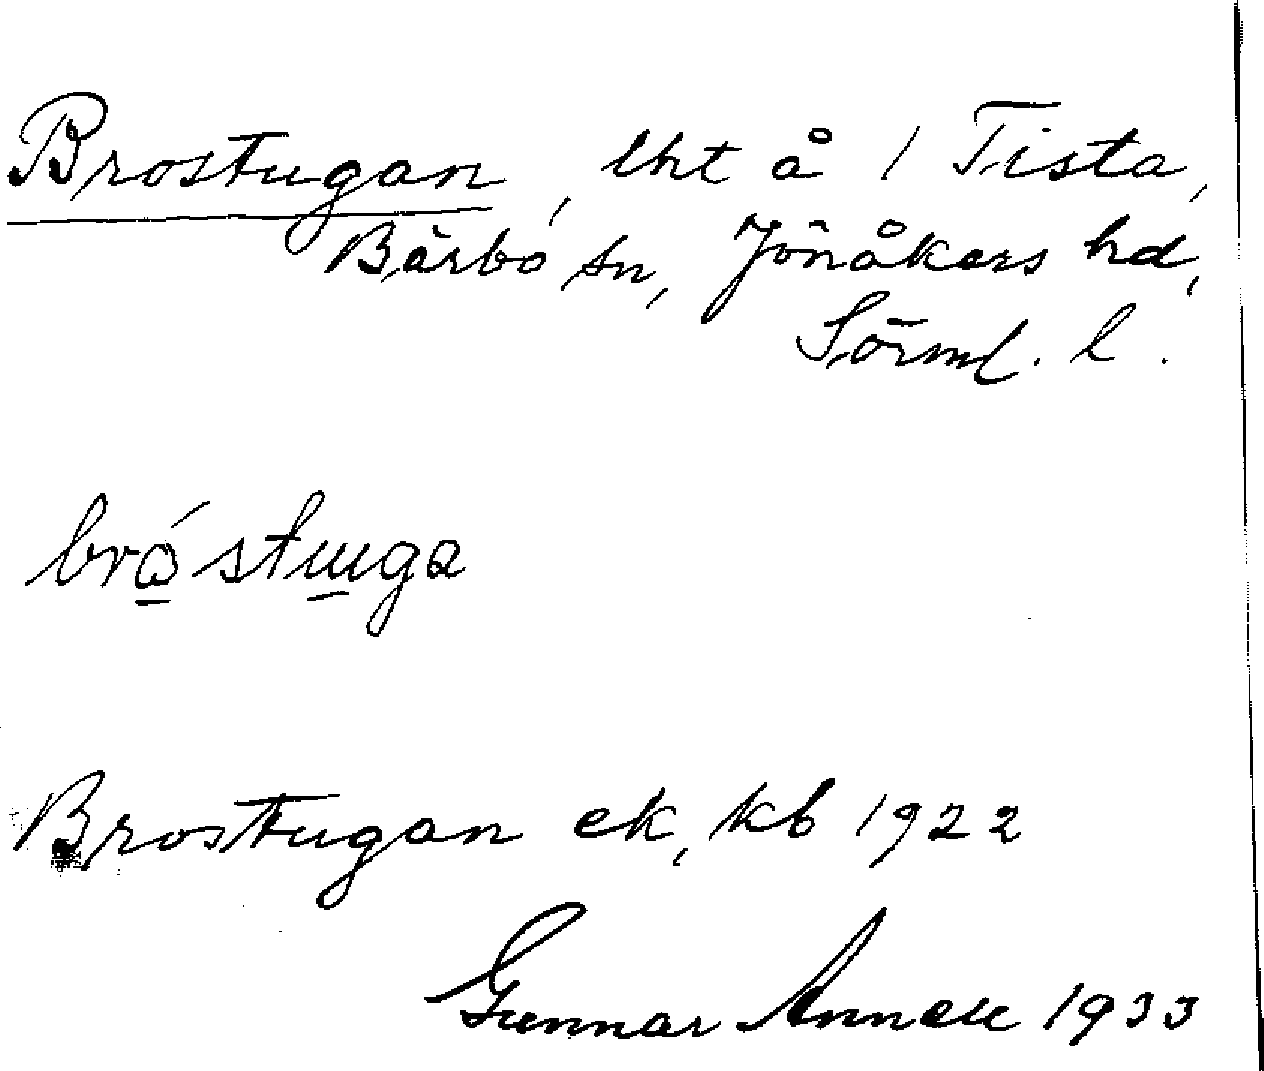 Brostugan, lht å 1 Tista,
Bärbo sn, Jönåkers hd,
Sörml. l.
bro´stuga
Brostugan ek, kb 1922
Gunnar 1933